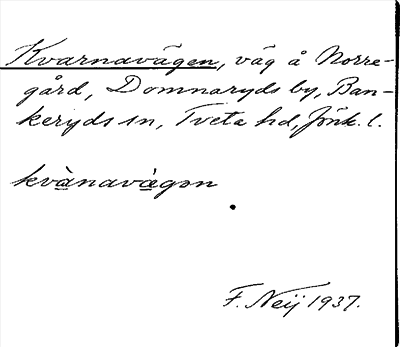 Kvarnavägen, väg å Norre-
gård, Domnaryds by, Ban-
keryds sn, Tveta hd, Jönk. l.
kvànavàgən
F. Neij 1937.